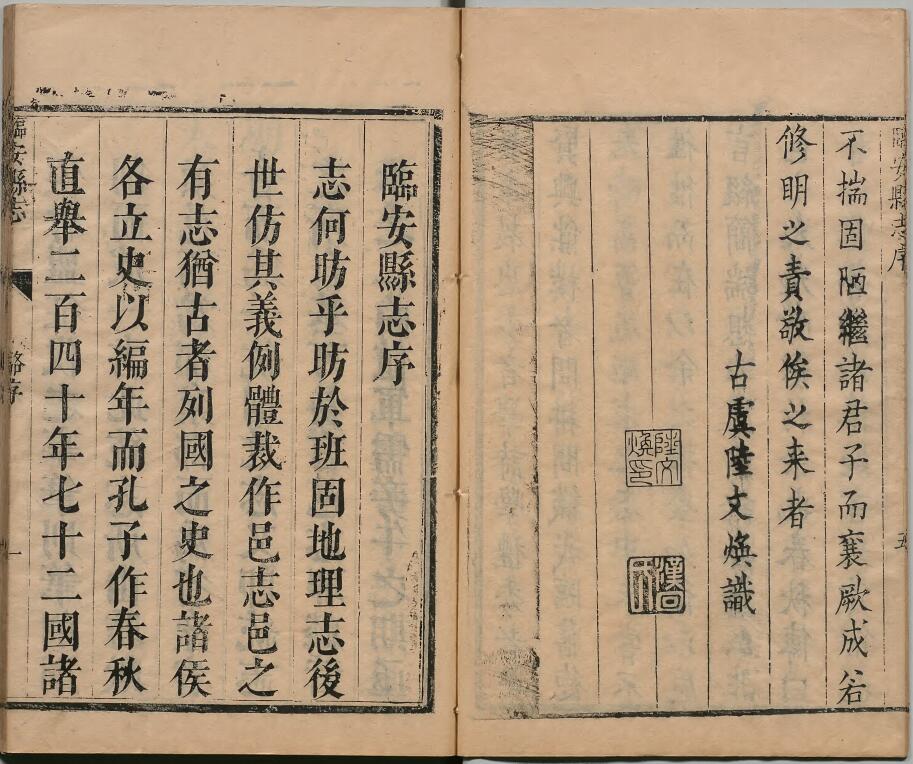 臨安縣志序
不揣固陋繼諸君子而襄厥成若
修明之責敬俟之来者
古虞陸文煥識
陸文煥印
五
臨安縣志序
志何昉乎昉於班固地理志後
世仿其義例體裁作邑志邑之
有志猶古者列國之史也諸侯
各立史以編年而孔子作春秋
直舉二百四十年七十二國諸
臨安縣志
序
一